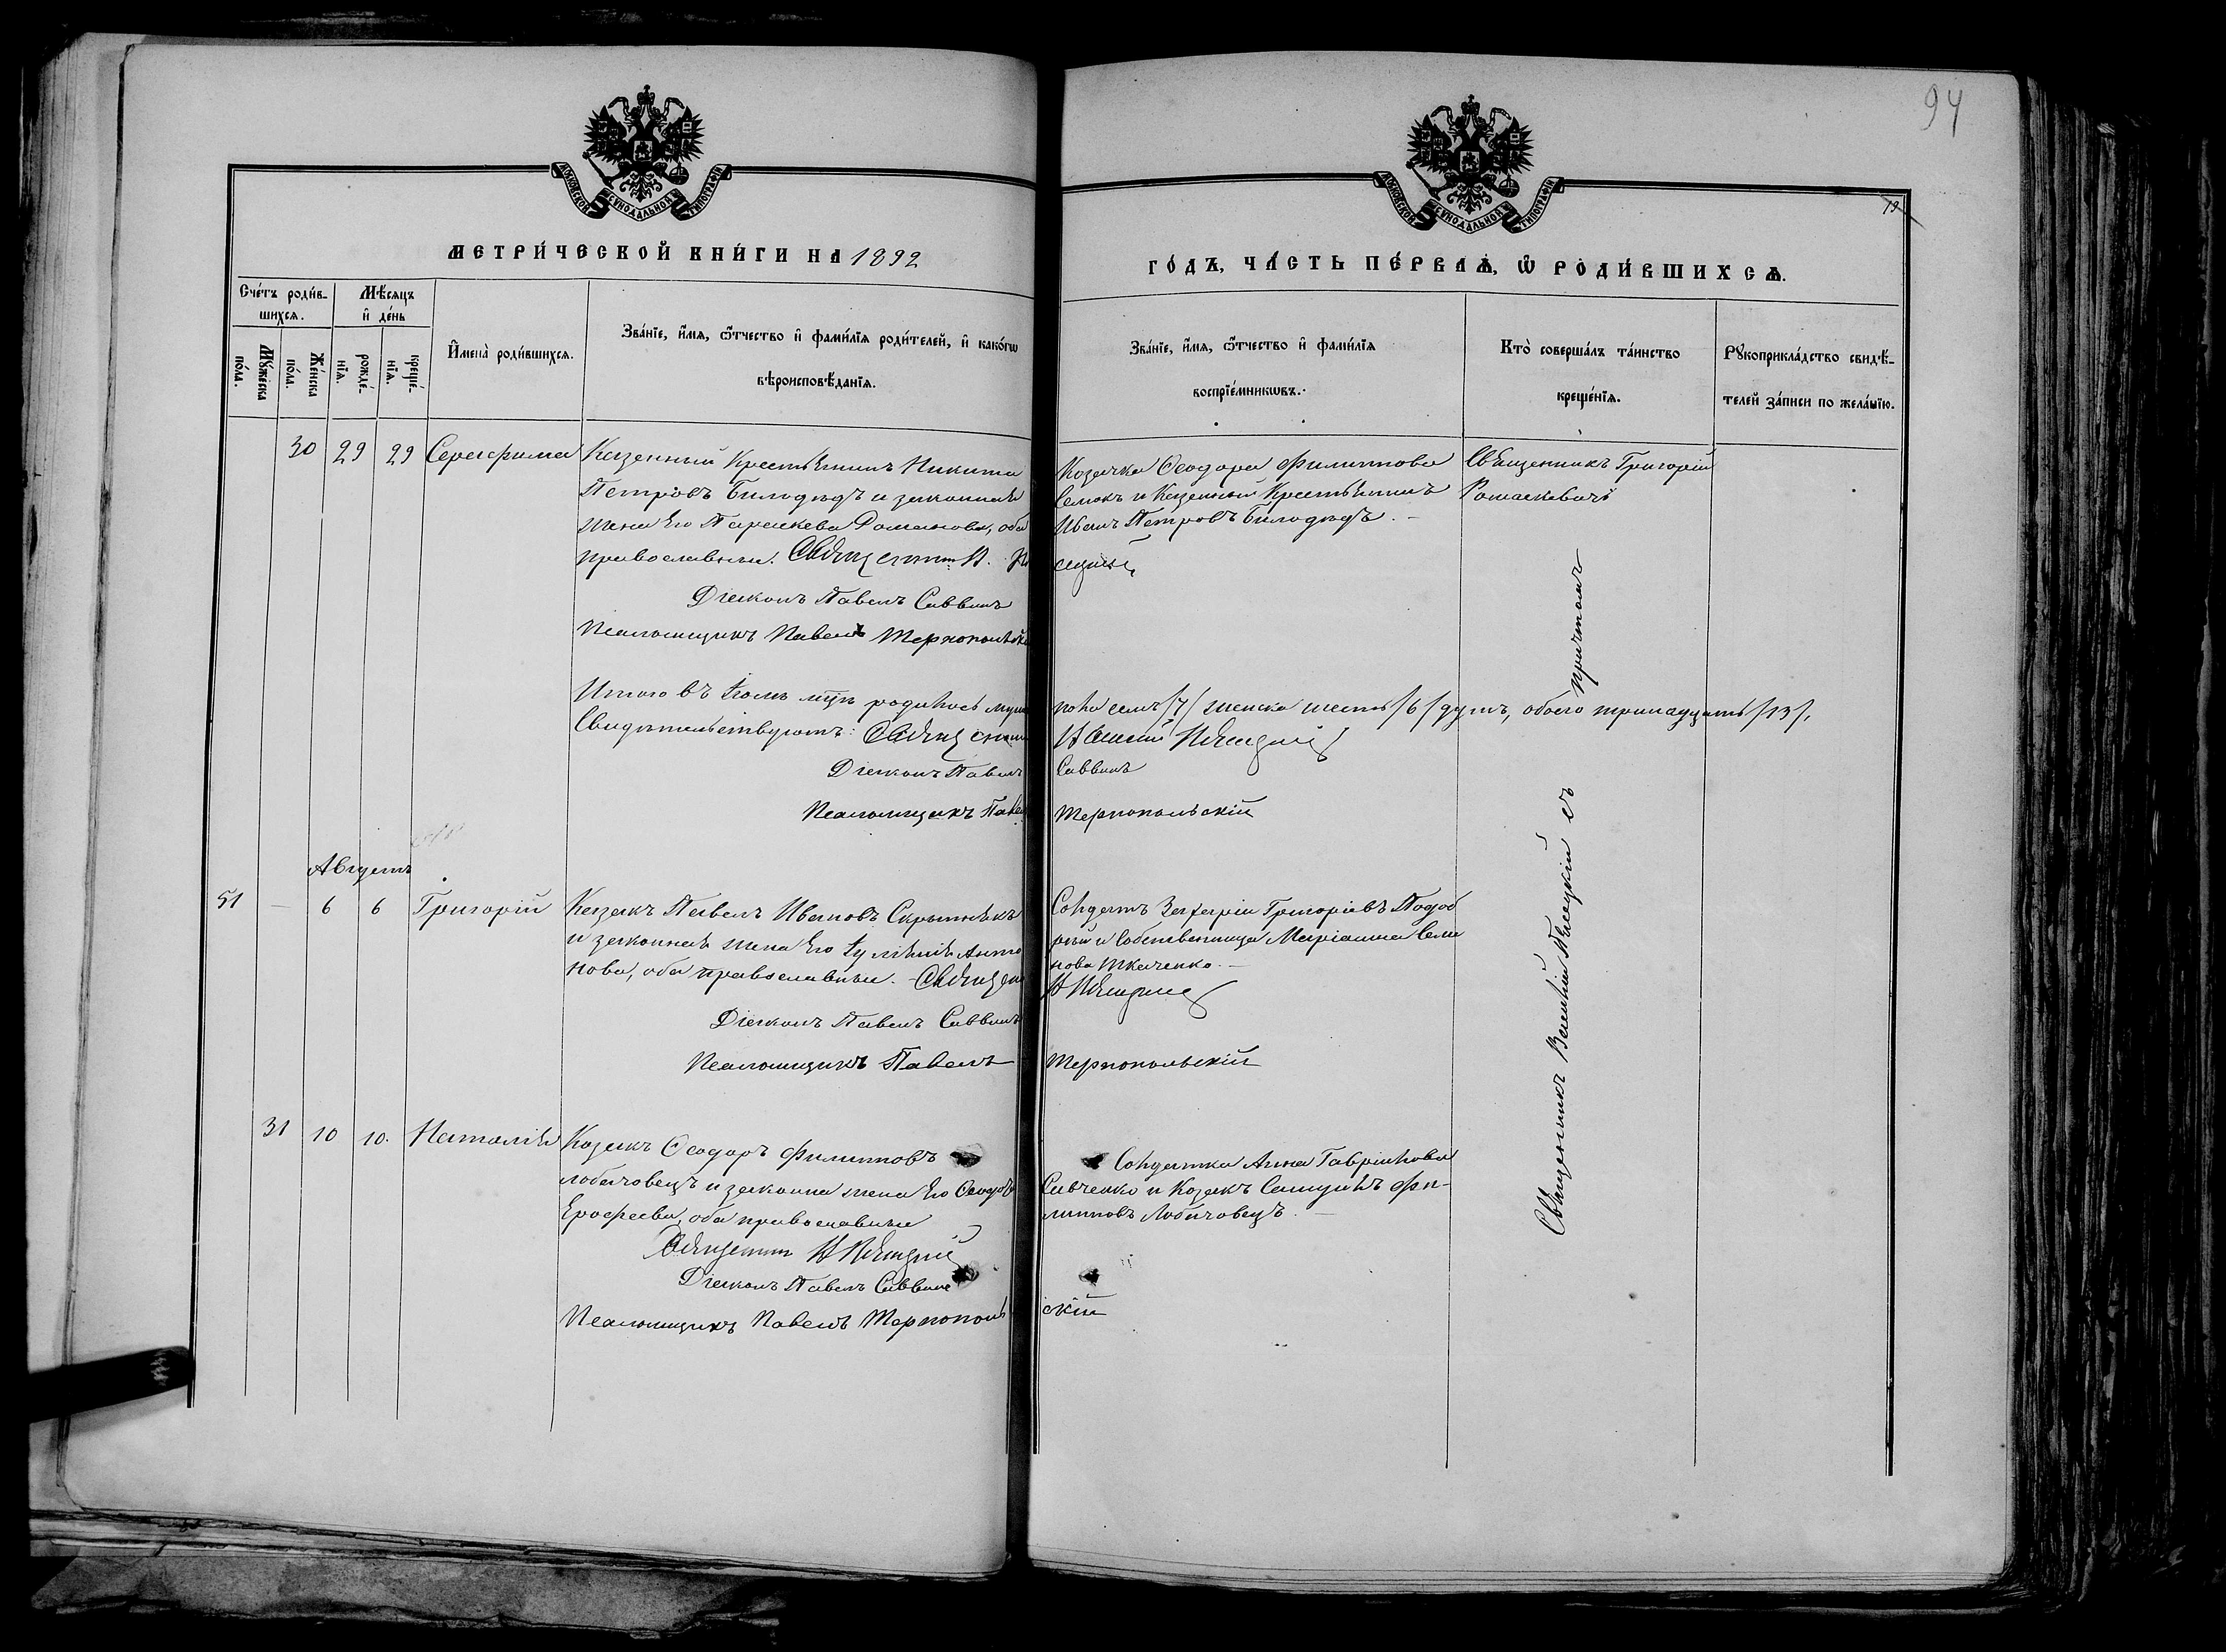 94
19
МОСКОВСКОЙ СѴНОДАЛЬНОЙ ТИПОГРАФІИ
МОСКОВСКОЙ СѴНОДАЛЬНОЙ ТИПОГРАФІИ
МЕТРИ́ЧЕСКОЙ КНИ́ГИ НА 1892
ГО́ДЪ, ЧА́СТЬ ПЕ́РВАѦ, Ѡ РОДИ́ВШИХСѦ.
Сче́тъ роди́в-
шихсѧ.
Мꙋ́жеска
по́ла.
Же́нска
по́ла.
Мѣ́сѧцъ
и҆ де́нь
рожде́-
нїѧ.
креще́-
нїѧ.
И҆мена̀ роди́вшихсѧ.
Зва́нїе, и҆́мѧ, ѻ҆́тчество и҆ фами́лїѧ роди́телей, и҆ како́гѡ
вѣроисповѣ́данїѧ.
Зва́нїе, и҆́мѧ, ѻ҆́тчество и҆ фами́лїѧ
воспрїе́мникѡвъ.
Кто̀ соверша́лъ та́инство
креще́нїѧ.
Рꙋкоприкла́дство свидѣ́-
телей за́писи по жела́нїю.
30 29 29 Серафима
Казенный Крестьянинъ Никита
Петровъ Билодѣдъ и законная
жена Его Параскева Романова, оба
православныи. Священникъ В.
Діаконъ Павелъ Саввинъ
Псаломщикъ Павелъ Тернопольскій
Козачка Ѳеодора Филиппова
Семокъ и Казенный Крестьянинъ
Иванъ Петровъ Билодѣдъ. –
Священникъ Григорій
Ромаскевичъ
Итого въ Іюлѣ мцѣ родилось муж. пола семь /7/ женска шесть /6/ душъ, обоего тринадцать /13/.
Свидѣтельствуютъ: Священникъ
Діаконъ Павелъ Саввинъ
Псаломщикъ Павелъ Тернопольскій
Августъ
51 – 6 6 Григорій
Казакъ Павелъ Ивановъ Скрынникъ
и законная жена Его Іуліанія Анто
нова, оба православныи. – Священникъ
Діаконъ Павелъ Саввинъ
Псаломщикъ Павелъ Тернопольскій
Солдатъ Захарій Григоріевъ Подоб
ный и Собственница Маріанна Семе
нова Ткаченко. –
31 10 10. Наталія
Козакъ Ѳеодоръ Филипповъ
Лобачовецъ и законна жена Его Ѳеодора
Ерофеева, оба православныи
Священникъ
Діаконъ Павелъ Саввинъ
Псаломщикъ Павелъ Тернопольскій
Солдатка Анна Гавріилова
Савченко и Козакъ Самуилъ Фи-
липповъ Лобачовецъ. –
Священникъ Василій съ
причтомъ